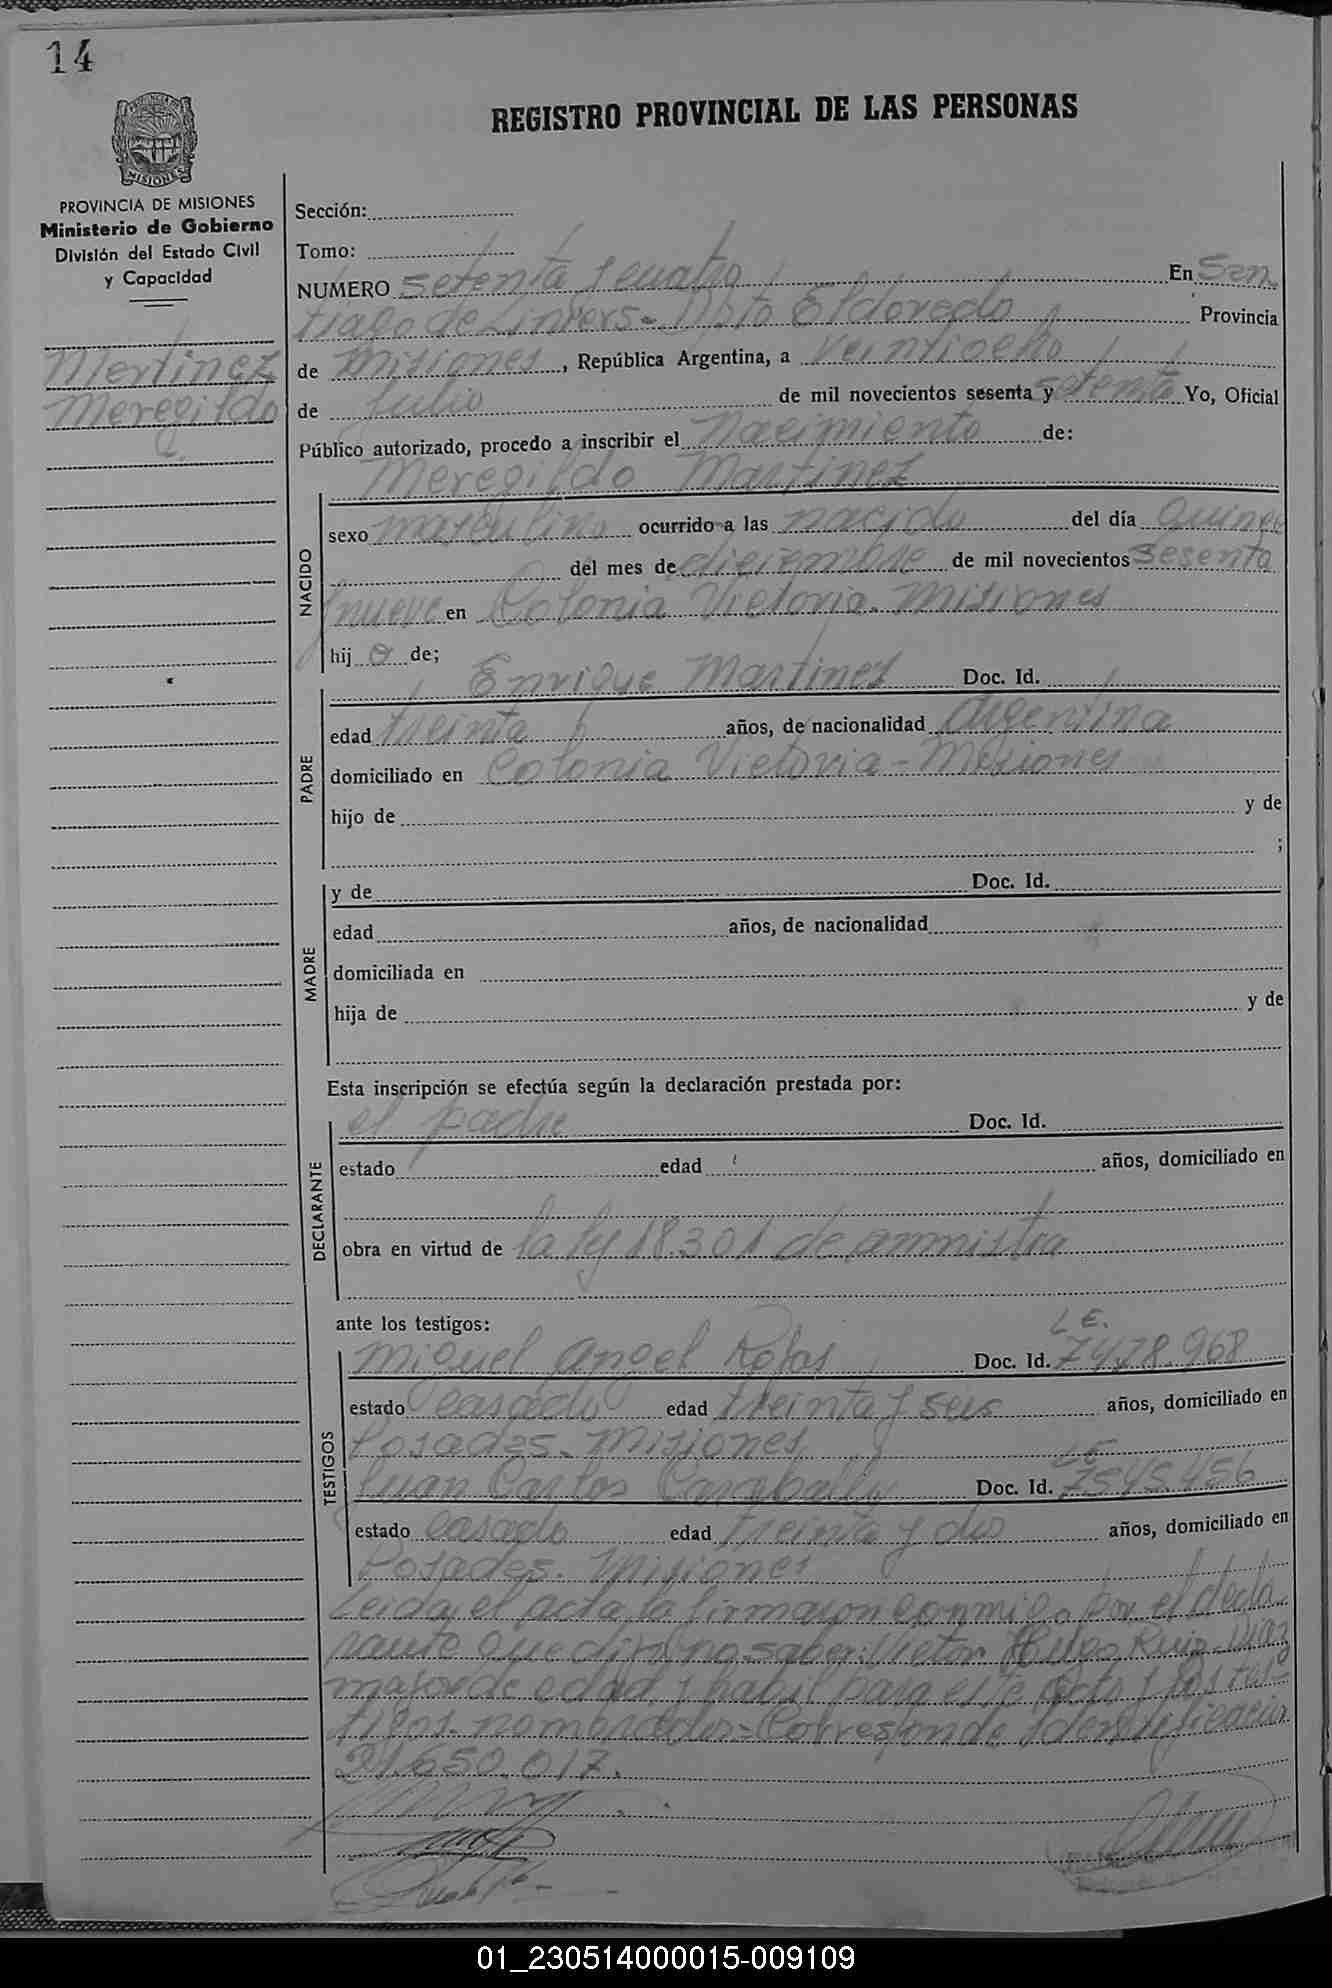 14
REGISTRO PROVINCIAL DE LAS PERSONAS
MISIONES
PROVINCIA DE MISIONES
Ministerio de Gobierno
División del Estado Civil
y Capacidad
Martinez
Meregildo
Sección:
Tomo:
NUMERO setenta y cuatro En San
tiago de Liniers - Dpto Eldorado Provincia
de Misiones, República Argentina, a veintiocho
de Julio de mil novecientos sesenta y setenta Yo, Oficial
Público autorizado, procedo a inscribir el Nacimiento de:
Meregildo Martinez
NACIDO
sexo masculino ocurrido a las nacido del día quince
del mes de diciembre de mil novecientos sesenta
y nueve en Colonia Victoria. Misiones
hij o de;
Enrique Martinez Doc. Id.
PADRE
edad treinta años, de nacionalidad Argentina
domiciliado en Colonia Victoria - Misiones
hijo de y de
;
MADRE
y de Doc. Id.
edad años, de nacionalidad
domiciliada en
hija de y de
Esta inscripción se efectúa según la declaración prestada por:
DECLARANTE
el padre Doc. Id.
estado edad años, domiciliado en
obra en virtud de la ley 18.301 de amnistia
ante los testigos:
TESTIGOS
L E.
Miguel Angel Rojas Doc. Id. 7478.968
estado casado edad treinta y seis años, domiciliado en
Posadas. Misiones
L E
Juan Carlos Doc. Id. 7545.456
estado casado edad treinta y dos años, domiciliado en
Posadas. Misiones
Leida el acta, la firmaron conmigo por el decla-
rante que dijo no saber: Victor Hugo Ruiz Diaz
mayor de edad y habil para este acto y los tes-
tigos nombrados = Corresponde Identificacion
21.650.017.
01_230514000015-009109